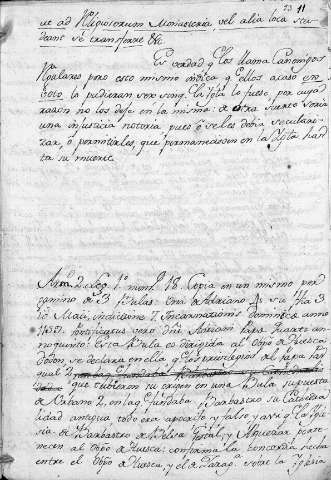 23 11
ut ad Religiosorum Monasteria, vel alia loca
deant se transferre &c.
Es verdad q los llama Canonigos
Rglares pero esto mismo indica q ellos acaso en
voto, la pudieran ser
razon no los dexa en la misma: de otra suerte seria
una injusticia notoria pues o seles debia seculari-
zar, o permitirles, que permanociesen en la Igla has-
ta su muerte.
Arm. 2 Leg. 1º num. 18. Copia en un mismo per-
gamino de 3 Bulas: una de Adriano 4. su fha 3
Maii, indictione 7 Incarnationis dominice anno
Pontificatus vero dñi Adriani Papa quarti an-
no quinto: Esta Bula es dirigida al Obpo de Huesca
Dodon, se declara en ella q los privilegios del Papa Pas-
qual 2
que tubieron su origen en una Bula supuesta
de Urbano 2. en la q fundaba Barbastro su Cathedra-
lidad antigua todo era apocrifo y falso, y assi q la Igle-
sia de Barbastro de Bielsa, Gistal, y Alquezar perte-
necen al Obpo de Huesca: confirma la concordia fecha
entre el Obpo de Huesca, y el de Zarag. sobre la iglesia